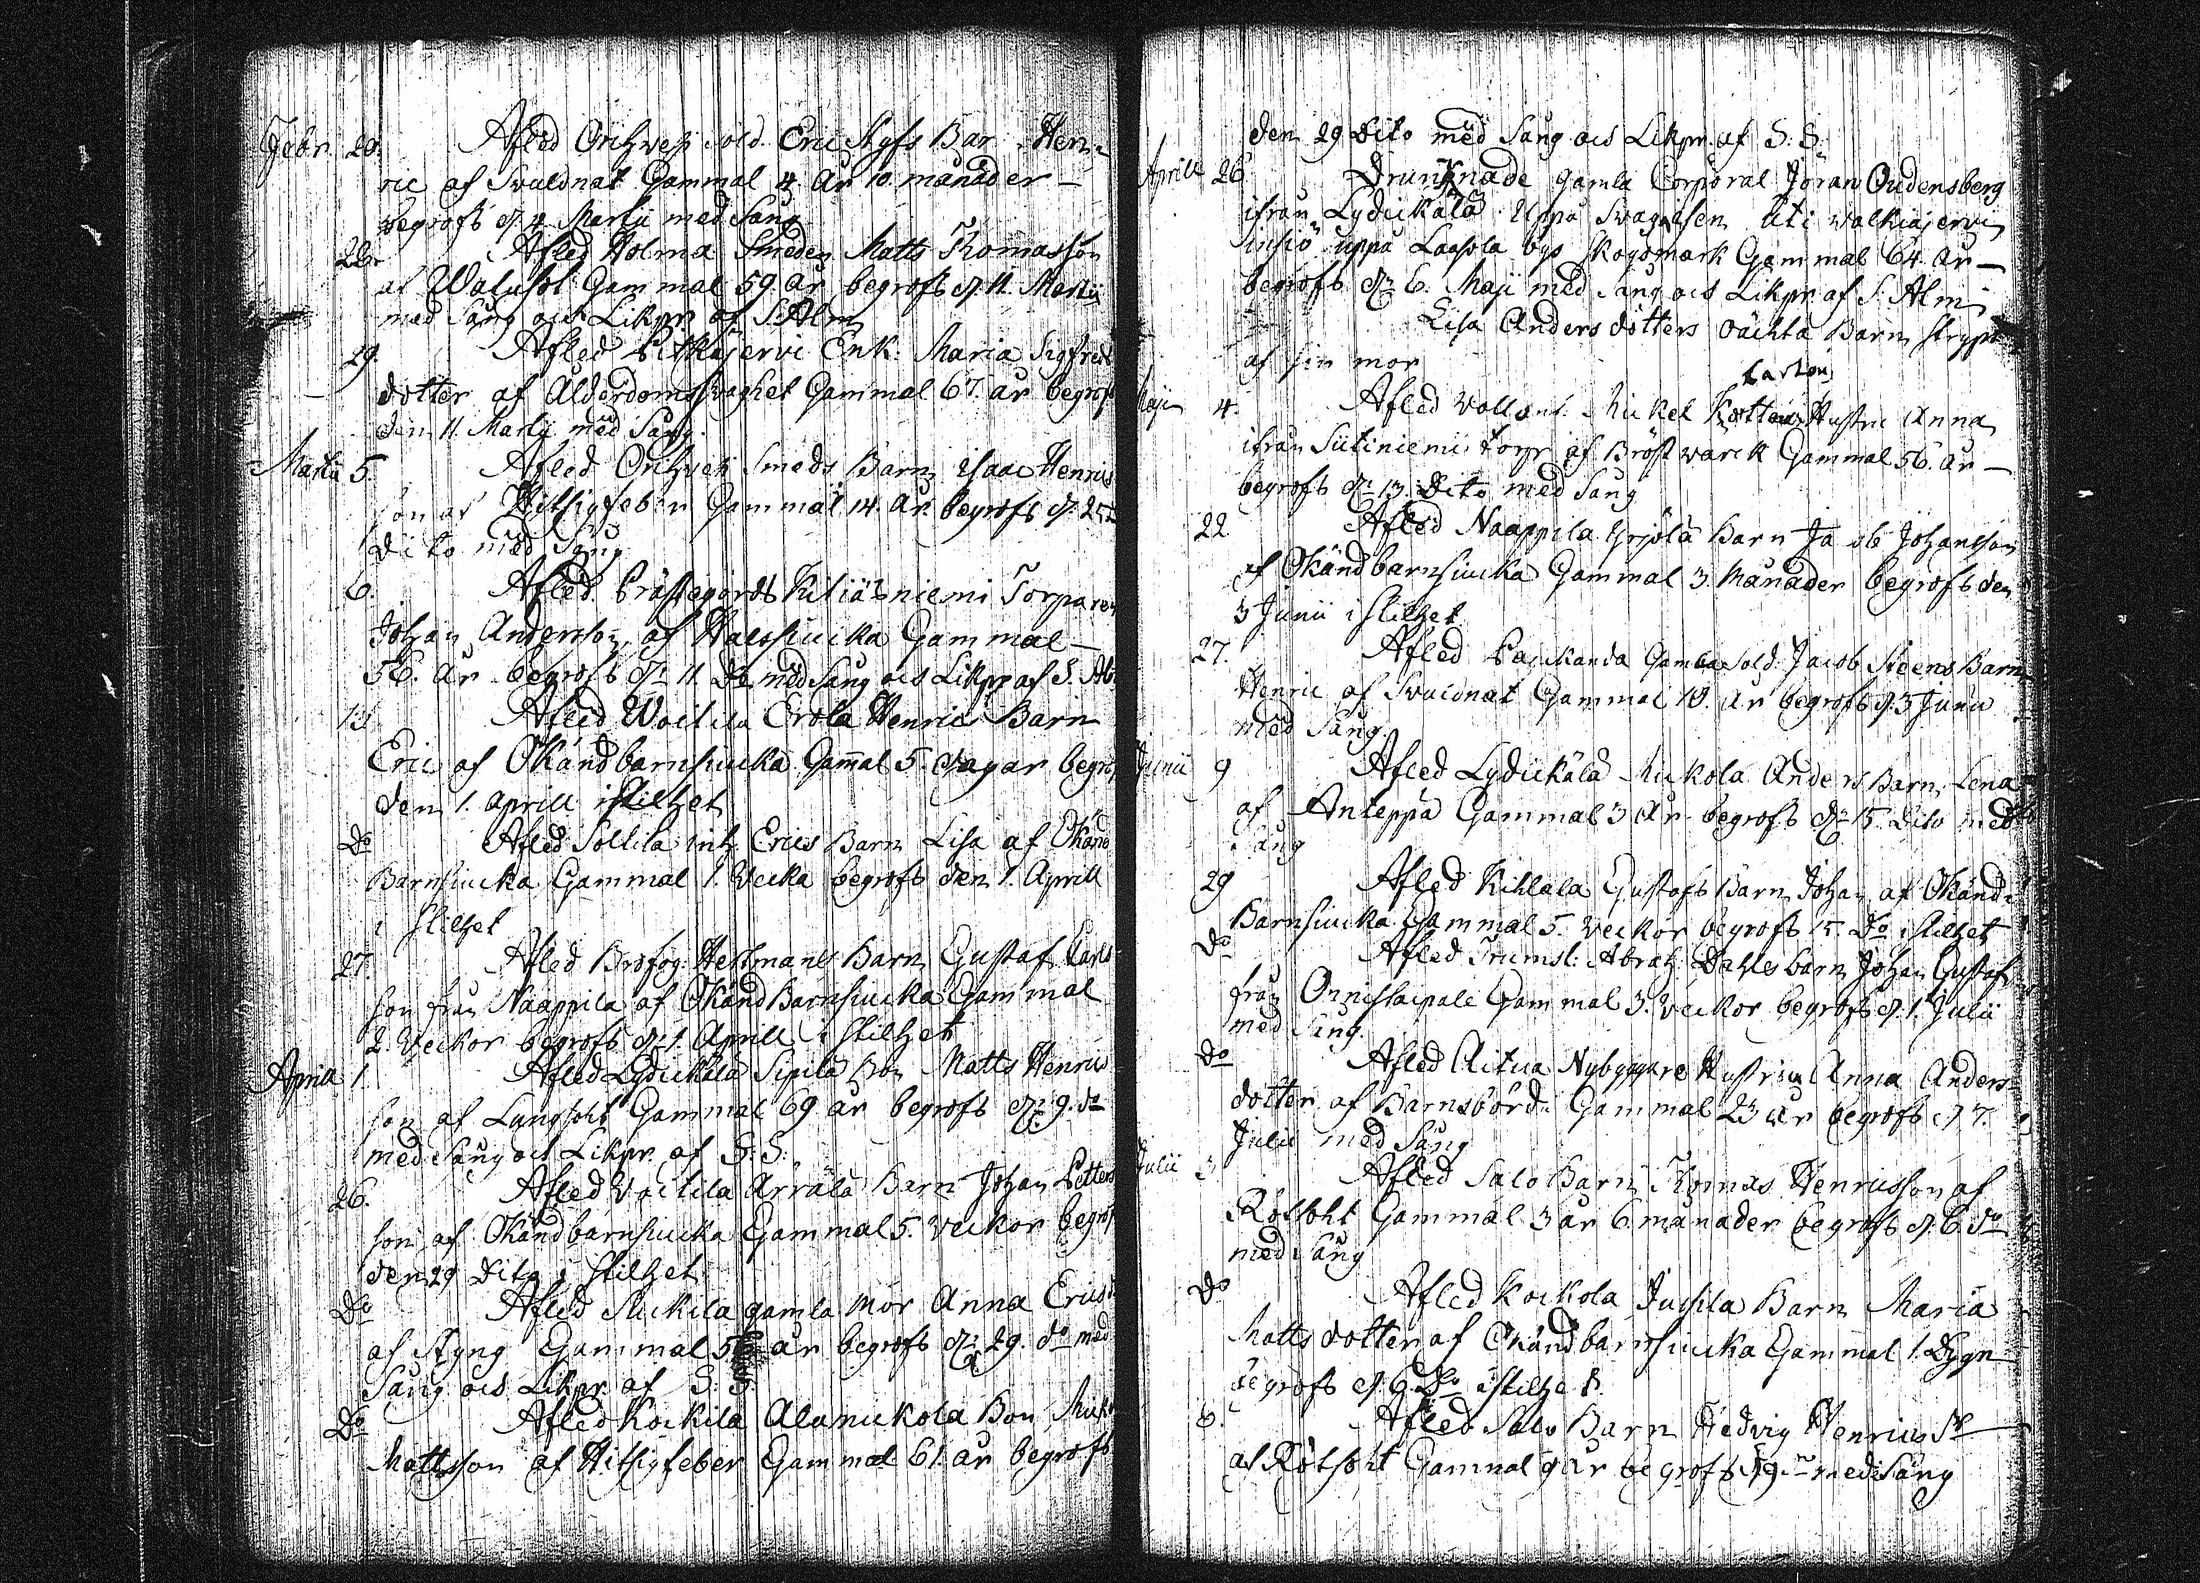 Febr. 20. Afled Orihvesi sold. Eric Skyfs Bar Hen-
ric af Svuldnat Gammal 4. År 10. månader —
begrofs d. 4 Martii med Sång
22. Afled Holma Smeden Matts Thomasson
af Gammal 59. år begrofs d. 11. Martii
med Sång och Likpr. af S. Alm
29. Afled Pitkäjervi Enk. Maria Sigfreds
dotter af Ålderdomssvaghet Gammal 67. år begrofs
den 11. Martij med Sång.
Martii 5. Afled Orihvesi Smeds Barn Isaac Henrics
son af Hitsigfeber Gammal 14. År begrofs d. 25
Dito med Sång
6. Afled Prästegårds Torparen
Johan Andersson af Halssiucka Gammal —
56. År begrofs d. 11. Do med Sång och Likpr. af S. Al
13. Afled Woitila Erola Henrics Barn
Eric af Okändbarnsiucka Gamal 5. dagar begrofs
den 1. aprill i stilhet
Do Afled Sollila inh. Erics Barn Lisa af Okänd
Barnsiucka Gammal 1. Vecka begrofs den 1. Aprill
i stilhet
27. Afled Brofog. Hertmans Barn Gustaf Carls
son från Naappila af Okänd Barnsiucka Gammal
2. Veckor begrofs d. 1. Aprill i stilhet
Aprill 1. Afled Lydickälä Sipilä Bon Matts Henrics
son af Lungsoht Gammal 69 år begrofs d. 9. do
med Sång och Likpr. af S: S:
26. Afled Voitila Arrälä Barn Johan Petters
son af Okändbarnsiucka Gammal 5. Veckor begrofs
den 29 Dito i stilhet.
Do Afled Muckila gamla mor Anna Ericsd.
af Styng Gammal 56 år begrofs d. 29. do med
Sång och Likpr. af S: S:
Do Afled Kockila Alanickola Bon Mick
Mattsson af Hitsigfeber Gammal 61. år begrofs
den 29 Dito med Sång och Likpr. af S: S:
Aprill 26. Drunknade gamla Corporal Jöran Gudensberg
ifrån Lydickälä Uppå Svagisen Uti Walkiajervi
insiö uppå Laasola bys skogsmark Gammal 64. År —
begrofs d. 6. Maji med Sång och Likpr. af S. Alm
Lisa Anders dotters oächta Barn strypt
af sin mor
Karhois
Maji 4. Afled Volont. Mickel Hustru Anna
ifrån Sutiniemi torp af Bröstwärck Gammal 56. år —
begrofs d. 13. Dito med Sång
22 Afled Naappila Yrjölä Barn Jacob Johansson
af Okändbarnsiucka Gammal 3. Månader begrofs den
3 Junii i stilhet
27. Afled Gamla Sold. Jacob Steens Barn
Henric af Svuldnat Gammal 10. år begrofs d. 3 Junii
med Sång.
Junii 9 Afled Lydickälä Mickola Anders Barn Lena
af Anteppa Gammal 3 År begrofs d. 15. Dito med
Sång
29 Afled Kihlala Gustafs Barn Johan af Okänd
Barnsiucka Gammal 5. Veckor begrofs 15. Do i stilhet
Do Afled Trumsl. Abrah. Dahles barn Johan Gustaf
från Onnistaipale Gammal 3. Veckor begrofs d. 1. Julii
med Sång.
Do Afled Aitua Nybyggare Hustru Anna Anders
dotter af Barnsbörd Gammal 23 år begrofs d. 7.
Julii med Sång
Julii 3 Afled Salo Barn Thomas Henricsson af
Rötsoht Gammal 3 år 6. månader begrofs d. 6. do
med Sång
Do Afled Kockola Jussila Barn Maria
Matts dotter af Okändbarnsiucka Gammal 1. Dygn
begrofs d. 6 Do i stilhet.
6. Afled Salo Barn Hedvig Henrics dr
af Rötsoht Gammal 9 år begrofs d. 9. med Sång